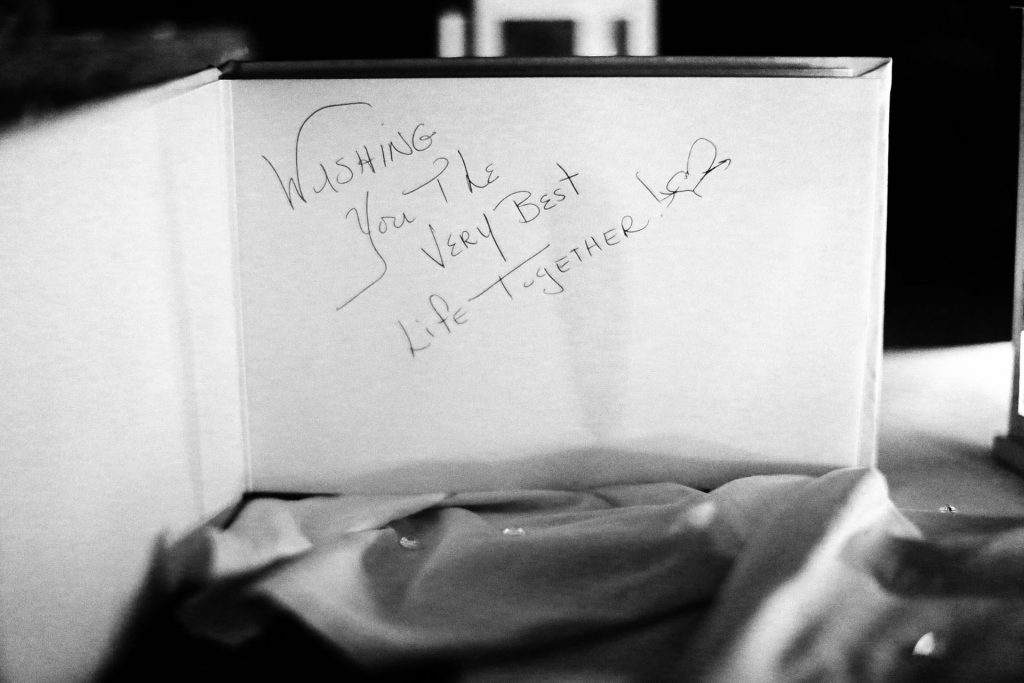 WISHING
You The
VERY BEST
LifE TogETHER!